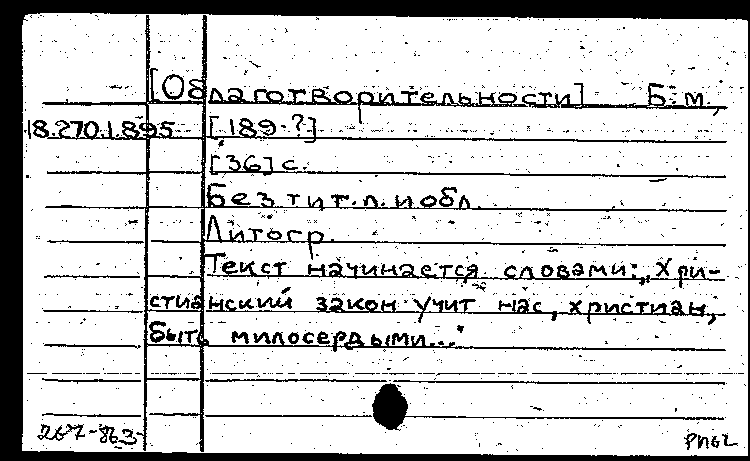 [О благотворительности] Б.м.,
18.270.1.895 [189-?]
[36] с.
Без тит.л. и обл.
Литогр.
Текст начинается словами: „Хри-
стианский закон учит нас, христиан,
быть милосердыми..."
267-863